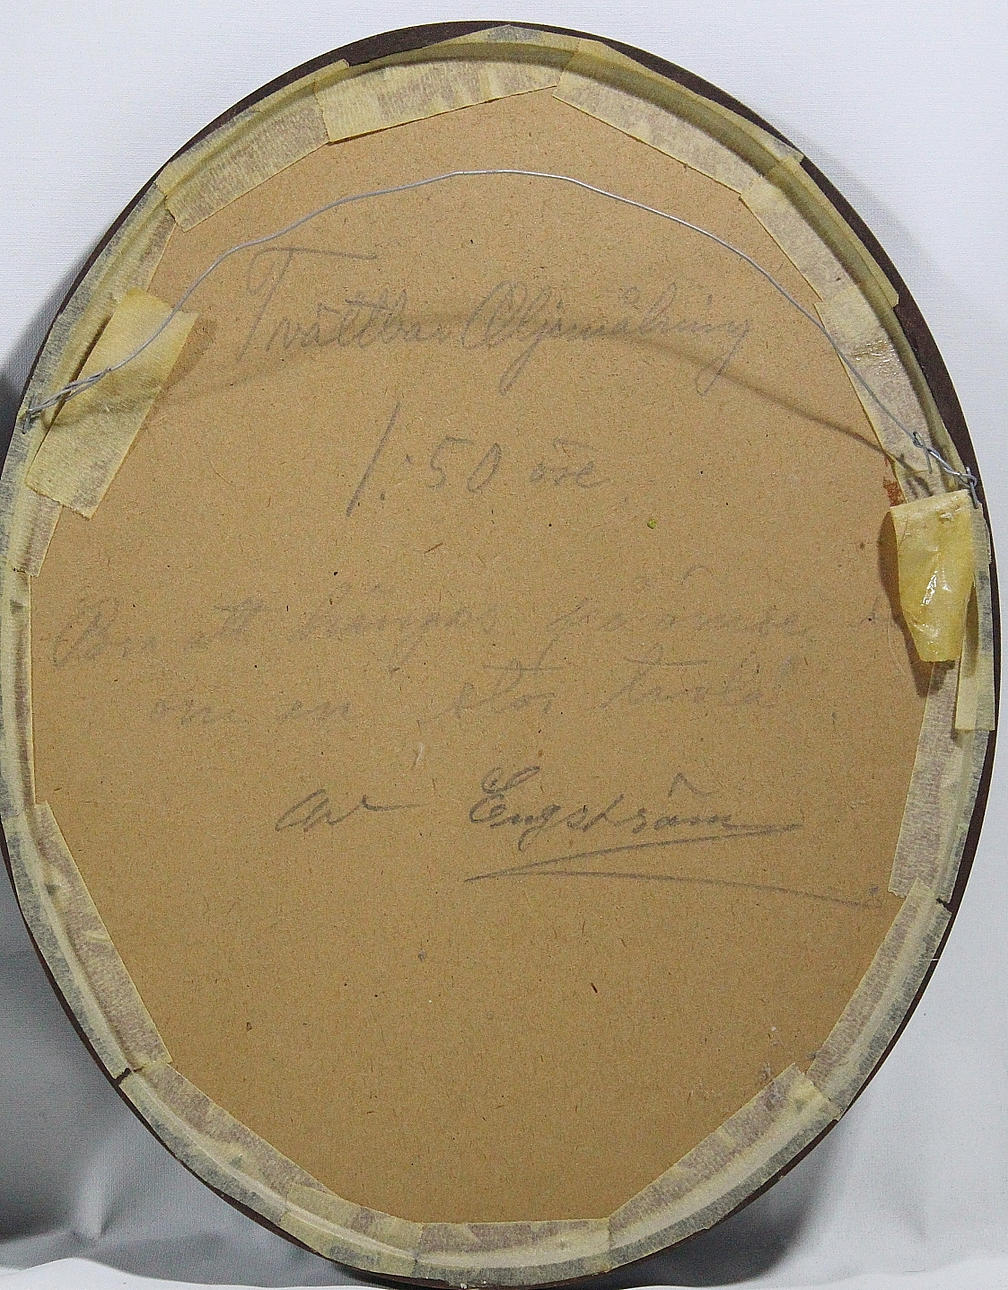 Tvättbar Oljemålning
1:50 öre.
Bra att hängas på ömse, s
om en stor tavla.
av Engström